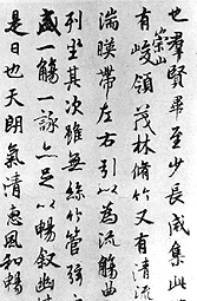 也羣賢畢至少長咸集此
有崇山峻領茂林脩竹又有清流
湍暎帶左右引以為流觴曲
列坐其次雖無絲竹管弦
盛一觴一詠亦足以暢敘幽情
是日也天朗氣清惠風和暢